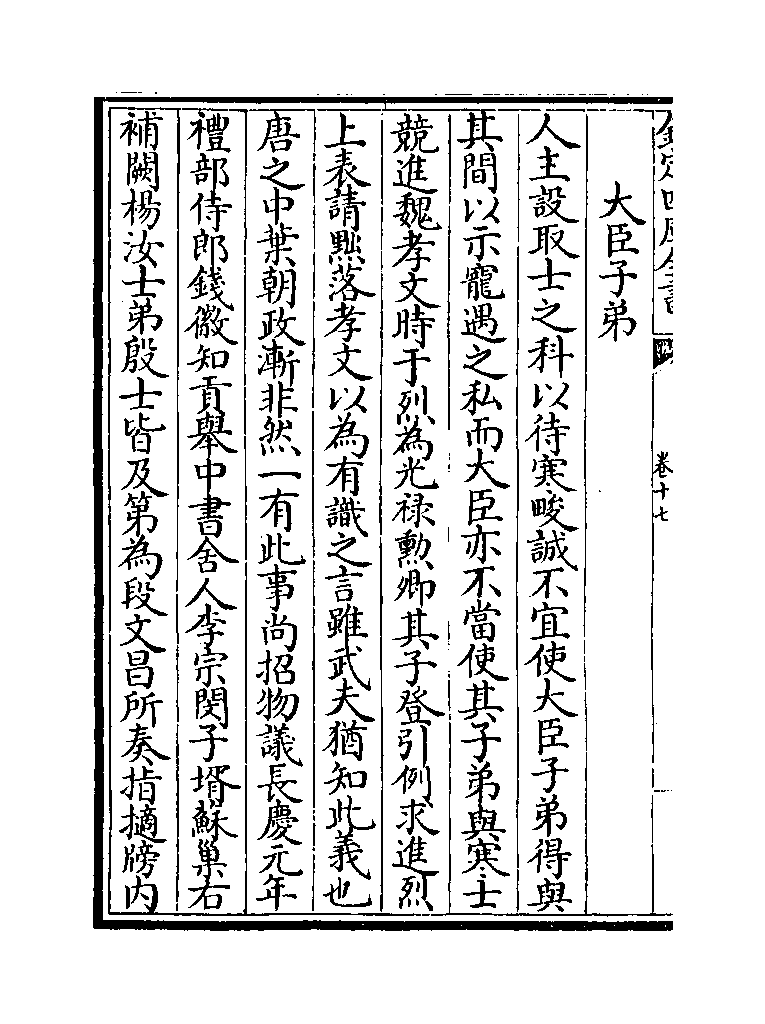 欽定四庫全書
卷十七
大臣子弟
人主設取士之科以待寒畯誠不宜使大臣子弟得與
其間以示寵遇之私而大臣亦不當使其子弟與寒士
競進魏孝文時于烈為光祿勲卿其子登引例求進烈
上表請黜落孝文以為有識之言雖武夫猶知此義也
唐之中葉朝政漸非然一有此事尚招物議長慶元年
禮部侍郎錢徽知貢舉中書舍人李宗閔子壻蘇巢右
補闕楊汝士弟殷士皆及第為段文昌所奏指擿牓内